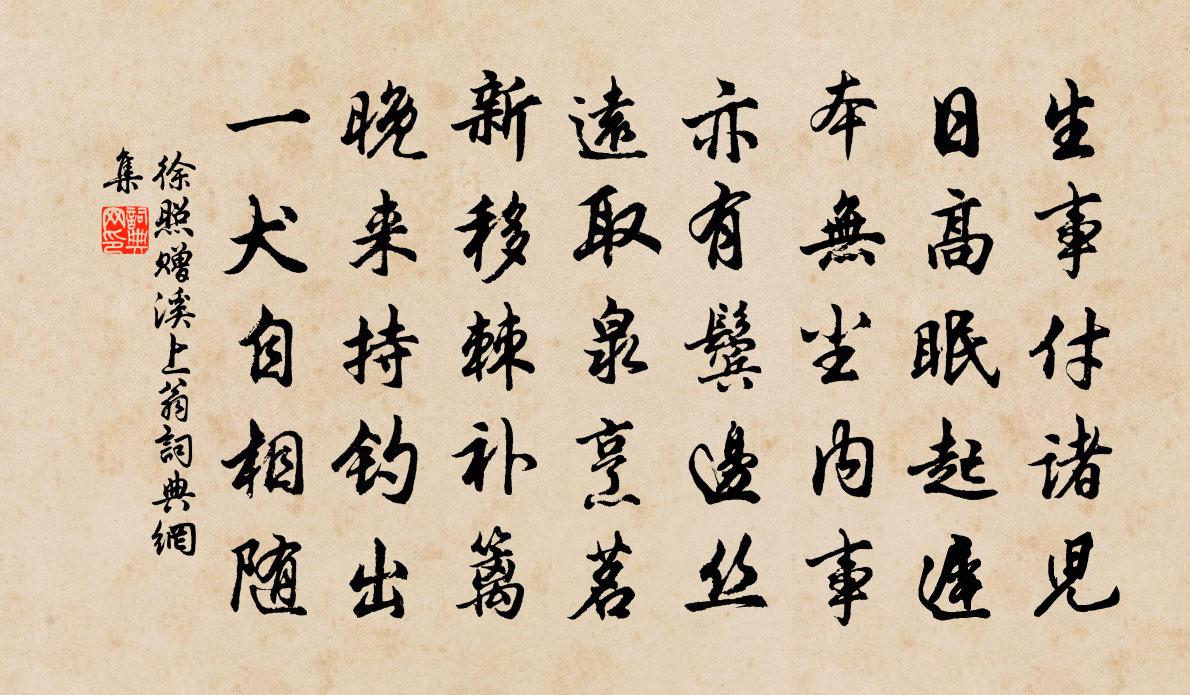 生事付诸児
日高眠起遲
本無尘内事
亦有鬓邊丝
遠取泉烹茗
新移棘补篱
晚来持钓出
一犬自相随
徐照赠溪上翁詞典網
集
詞典
网印